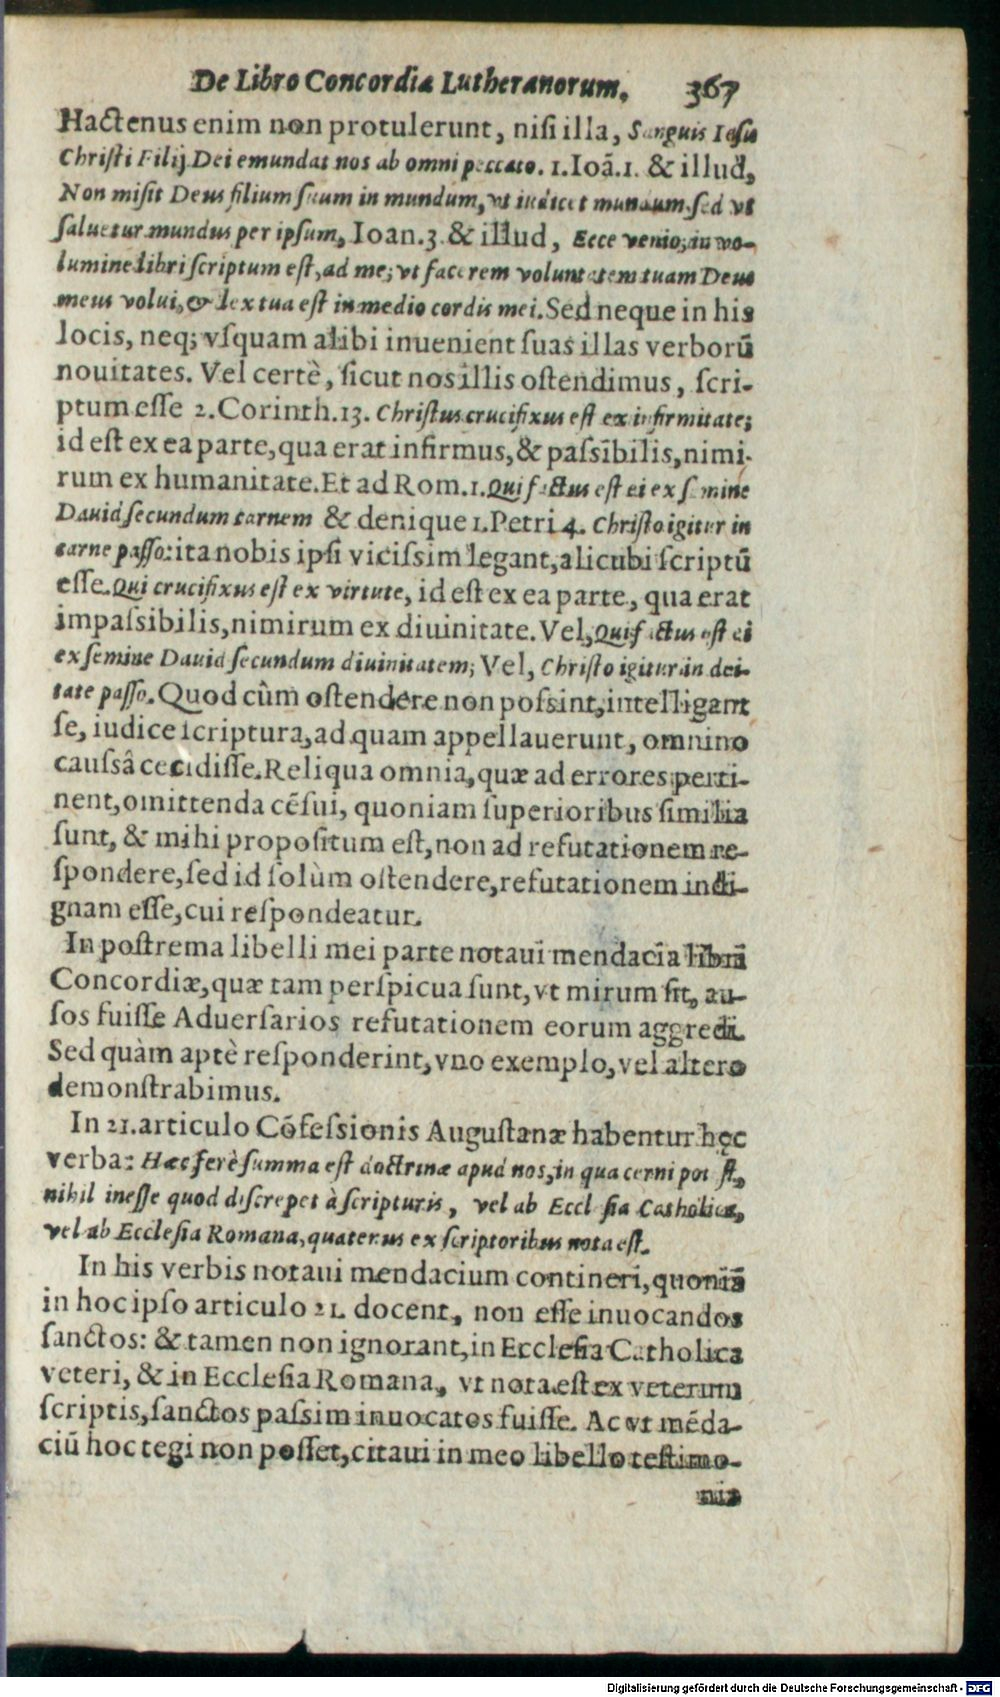 De Libro Concordiæ Lutheranorum. 367
Hactenus enim non protulerunt, nisi illa, Sanguis Iesu
Christi Filij Dei emundat nos ab omni peccato. 1. Ioã. 1. & illud,
Non misit Deus filium suum in mundum, vt iudicet mundum sed vt
saluetur mundus per ipsum, Ioan. 3. & illud, Ecce venio; in vo-
lumine libri scriptum est, ad me; vt facerem voluntatem tuam Deus
meus volui, & lex tua est in medio cordis mei. Sed neque in his
locis, neq; vsquam alibi inuenient suas illas verborũ
nouitates. Vel certè, sicut nos illis ostendimus, scri-
ptum esse 2. Corinth. 13. Christus crucifixus est ex infirmitate;
id est ex ea parte, qua erat infirmus, & passibilis, nimi-
rum ex humanitate. Et ad Rom. 1. Qui factus est ei ex semine
Dauid secundum carnem & denique 1. Petri 4. Christo igitur in
carne passo: ita nobis ipsi vicissim legant, alicubi scriptũ
esse. Qui crucifixus est ex virtute, id est ex ea parte, qua erat
impassibilis, nimirum ex diuinitate. Vel, Qui factus est ei
ex semine Dauid secundum diuinitatem; Vel, Christo igitur in dei-
tate passo. Quod cûm ostendere non possint, intelligant
se, iudice scriptura, ad quam appellauerunt, omnino
caussâ cecidisse. Reliqua omnia, quæ ad errores perti-
nent, omittenda cẽsui, quoniam superioribus similia
sunt, & mihi propositum est, non ad refutationem re-
spondere, sed id solùm ostendere, refutationem indi-
gnam esse, cui respondeatur.
In postrema libelli mei parte notaui mendacia libri
Concordiæ, quæ tam perspicua sunt, vt mirum sit, au-
sos fuisse Aduersarios refutationem eorum aggredi.
Sed quàm aptè responderint, vno exemplo, vel altero
demonstrabimus.
In 21. articulo Cõfessionis Augustanæ habentur hęc
verba: Hæc ferè summa est doctrinæ apud nos, in qua cerni potest,
nihil inesse quod discrepet à scripturis, vel ab Ecclesia Catholica,
vel ab Ecclesia Romana, quatenus ex scriptoribus nota est.
In his verbis notaui mendacium contineri, quoniã
in hoc ipso articulo 21. docent, non esse inuocandos
sanctos: & tamen non ignorant, in Ecclesia Catholica
veteri, & in Ecclesia Romana, vt nota est ex veterum
scriptis, sanctos passim inuocatos fuisse. Ac vt mẽda-
ciũ hoc tegi non posset, citaui in meo libello testimo-
nia
Digitalisierung gefördert durch die Deutsche Forschungsgemeinschaft - DFG